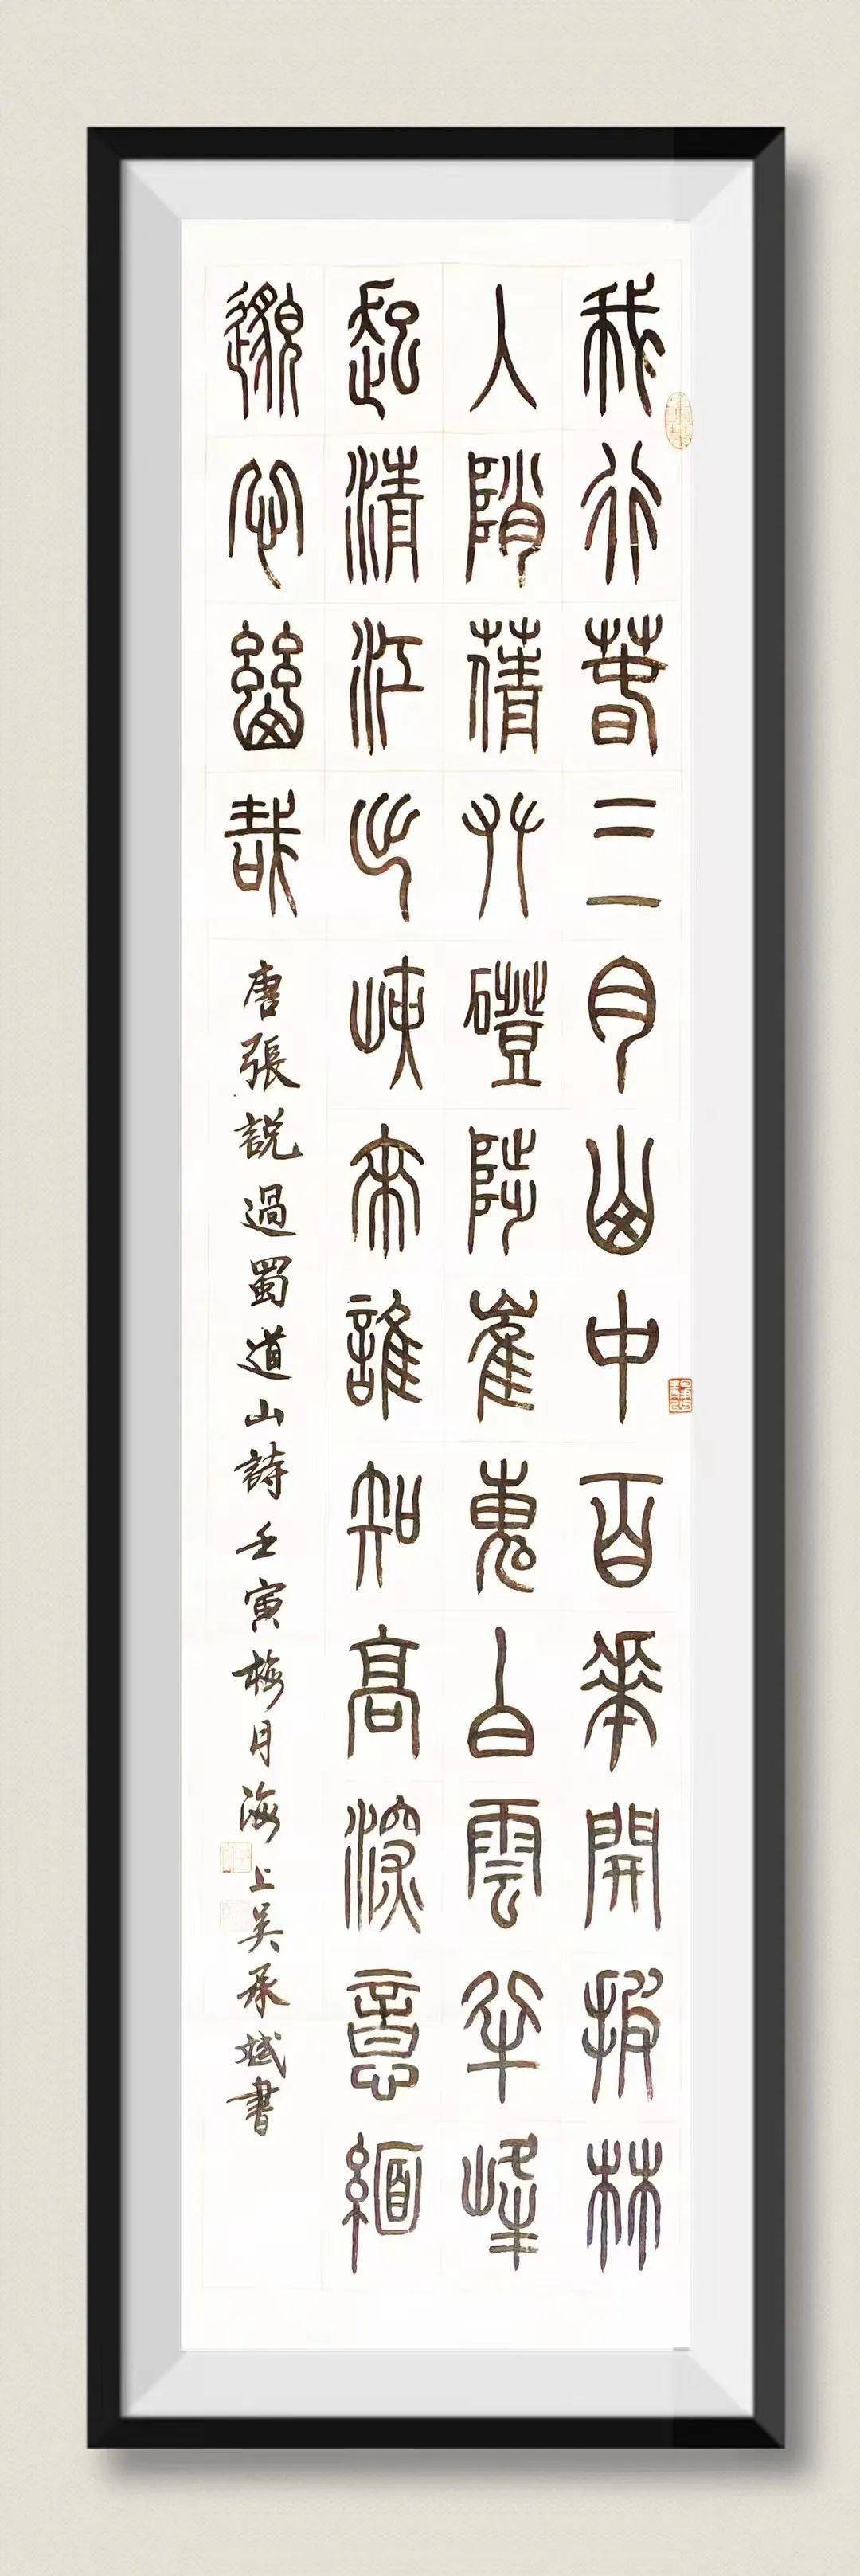 我行春三月山中百華開披林
入陗蒨攀磴陟崔嵬白雲半峰
起清江出峽來誰知高深意緬
邈心幽哉
唐張説過蜀道山詩壬寅梅月海上吴承斌書